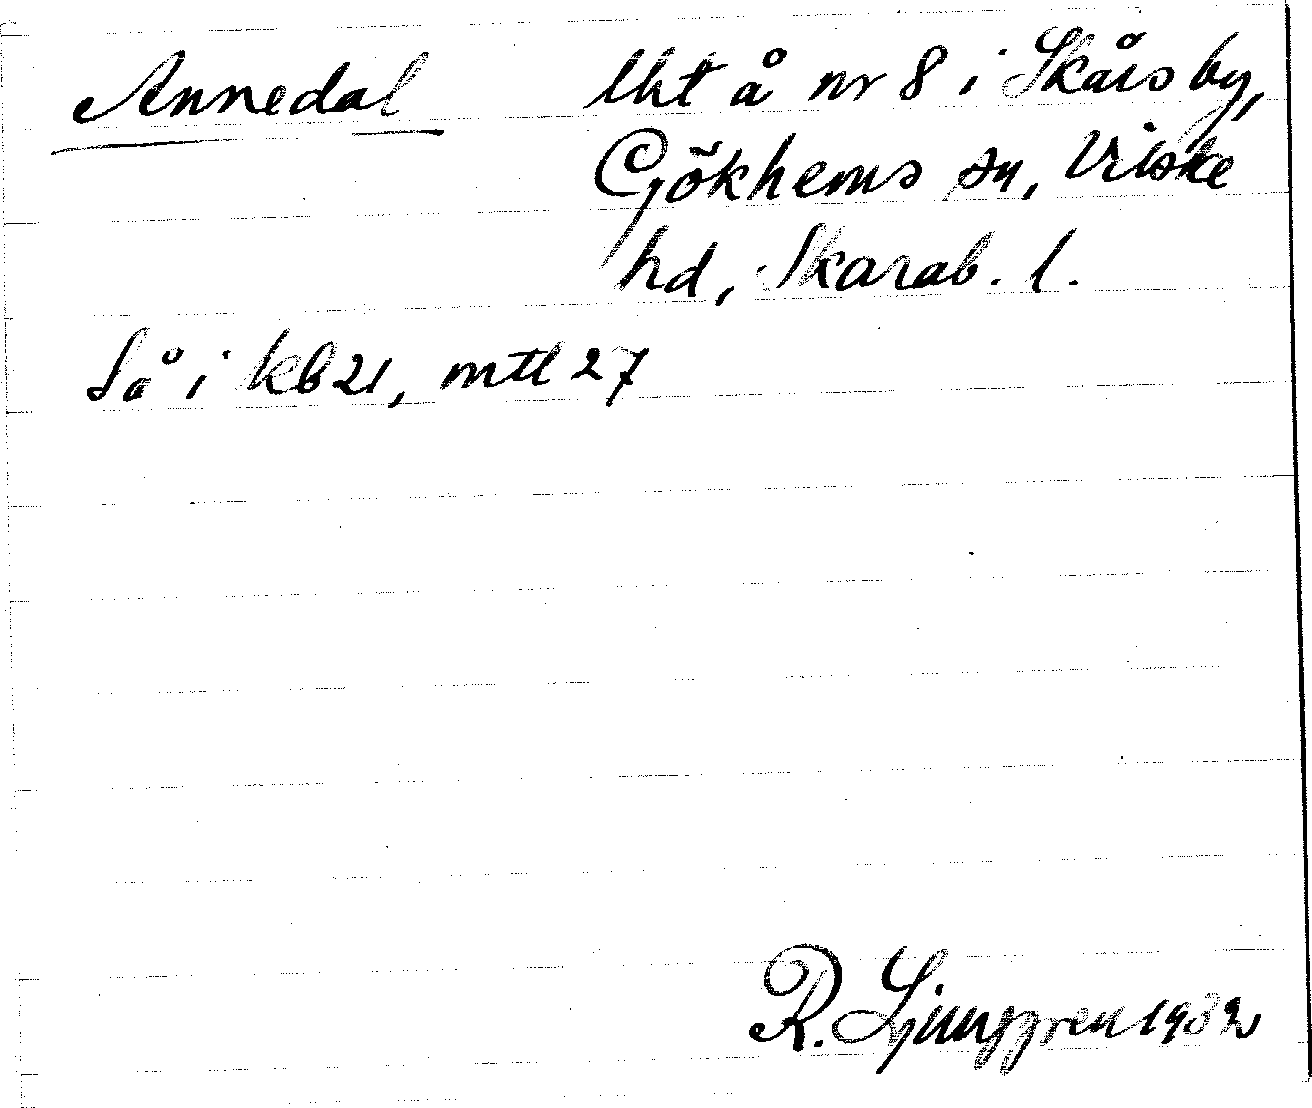 Annedal
lht å nr 8 i Skårs by,
Gökhems sn, Vilske
hd, Skarab. l.
Så i kb 21, mtl 27
R. Ljunggren 1932